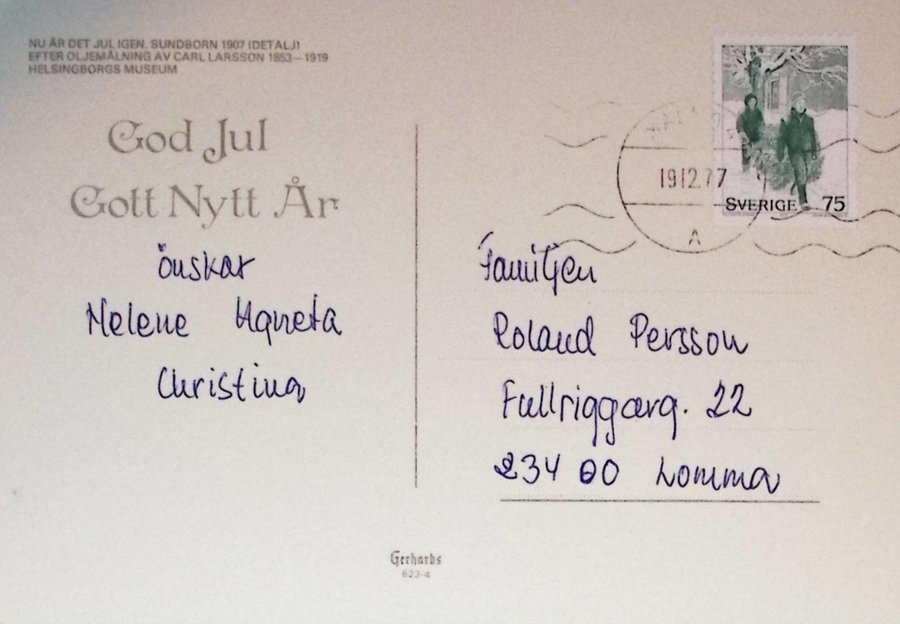 NU ÄR DET JUL IGEN. SUNDBORN 1907 (DETALJ)
EFTER OLJEMÅLNING AV CARL LARSSON 1853–1919
HELSINGBORGS MUSEUM
God Jul
Gott Nytt År
önskar
Helene Agneta
Christina
19 12.77
A
SVERIGE 75
Familjen
Roland Persson
Fullriggareg. 22
234 00 Lomma
Gerhards
623-4